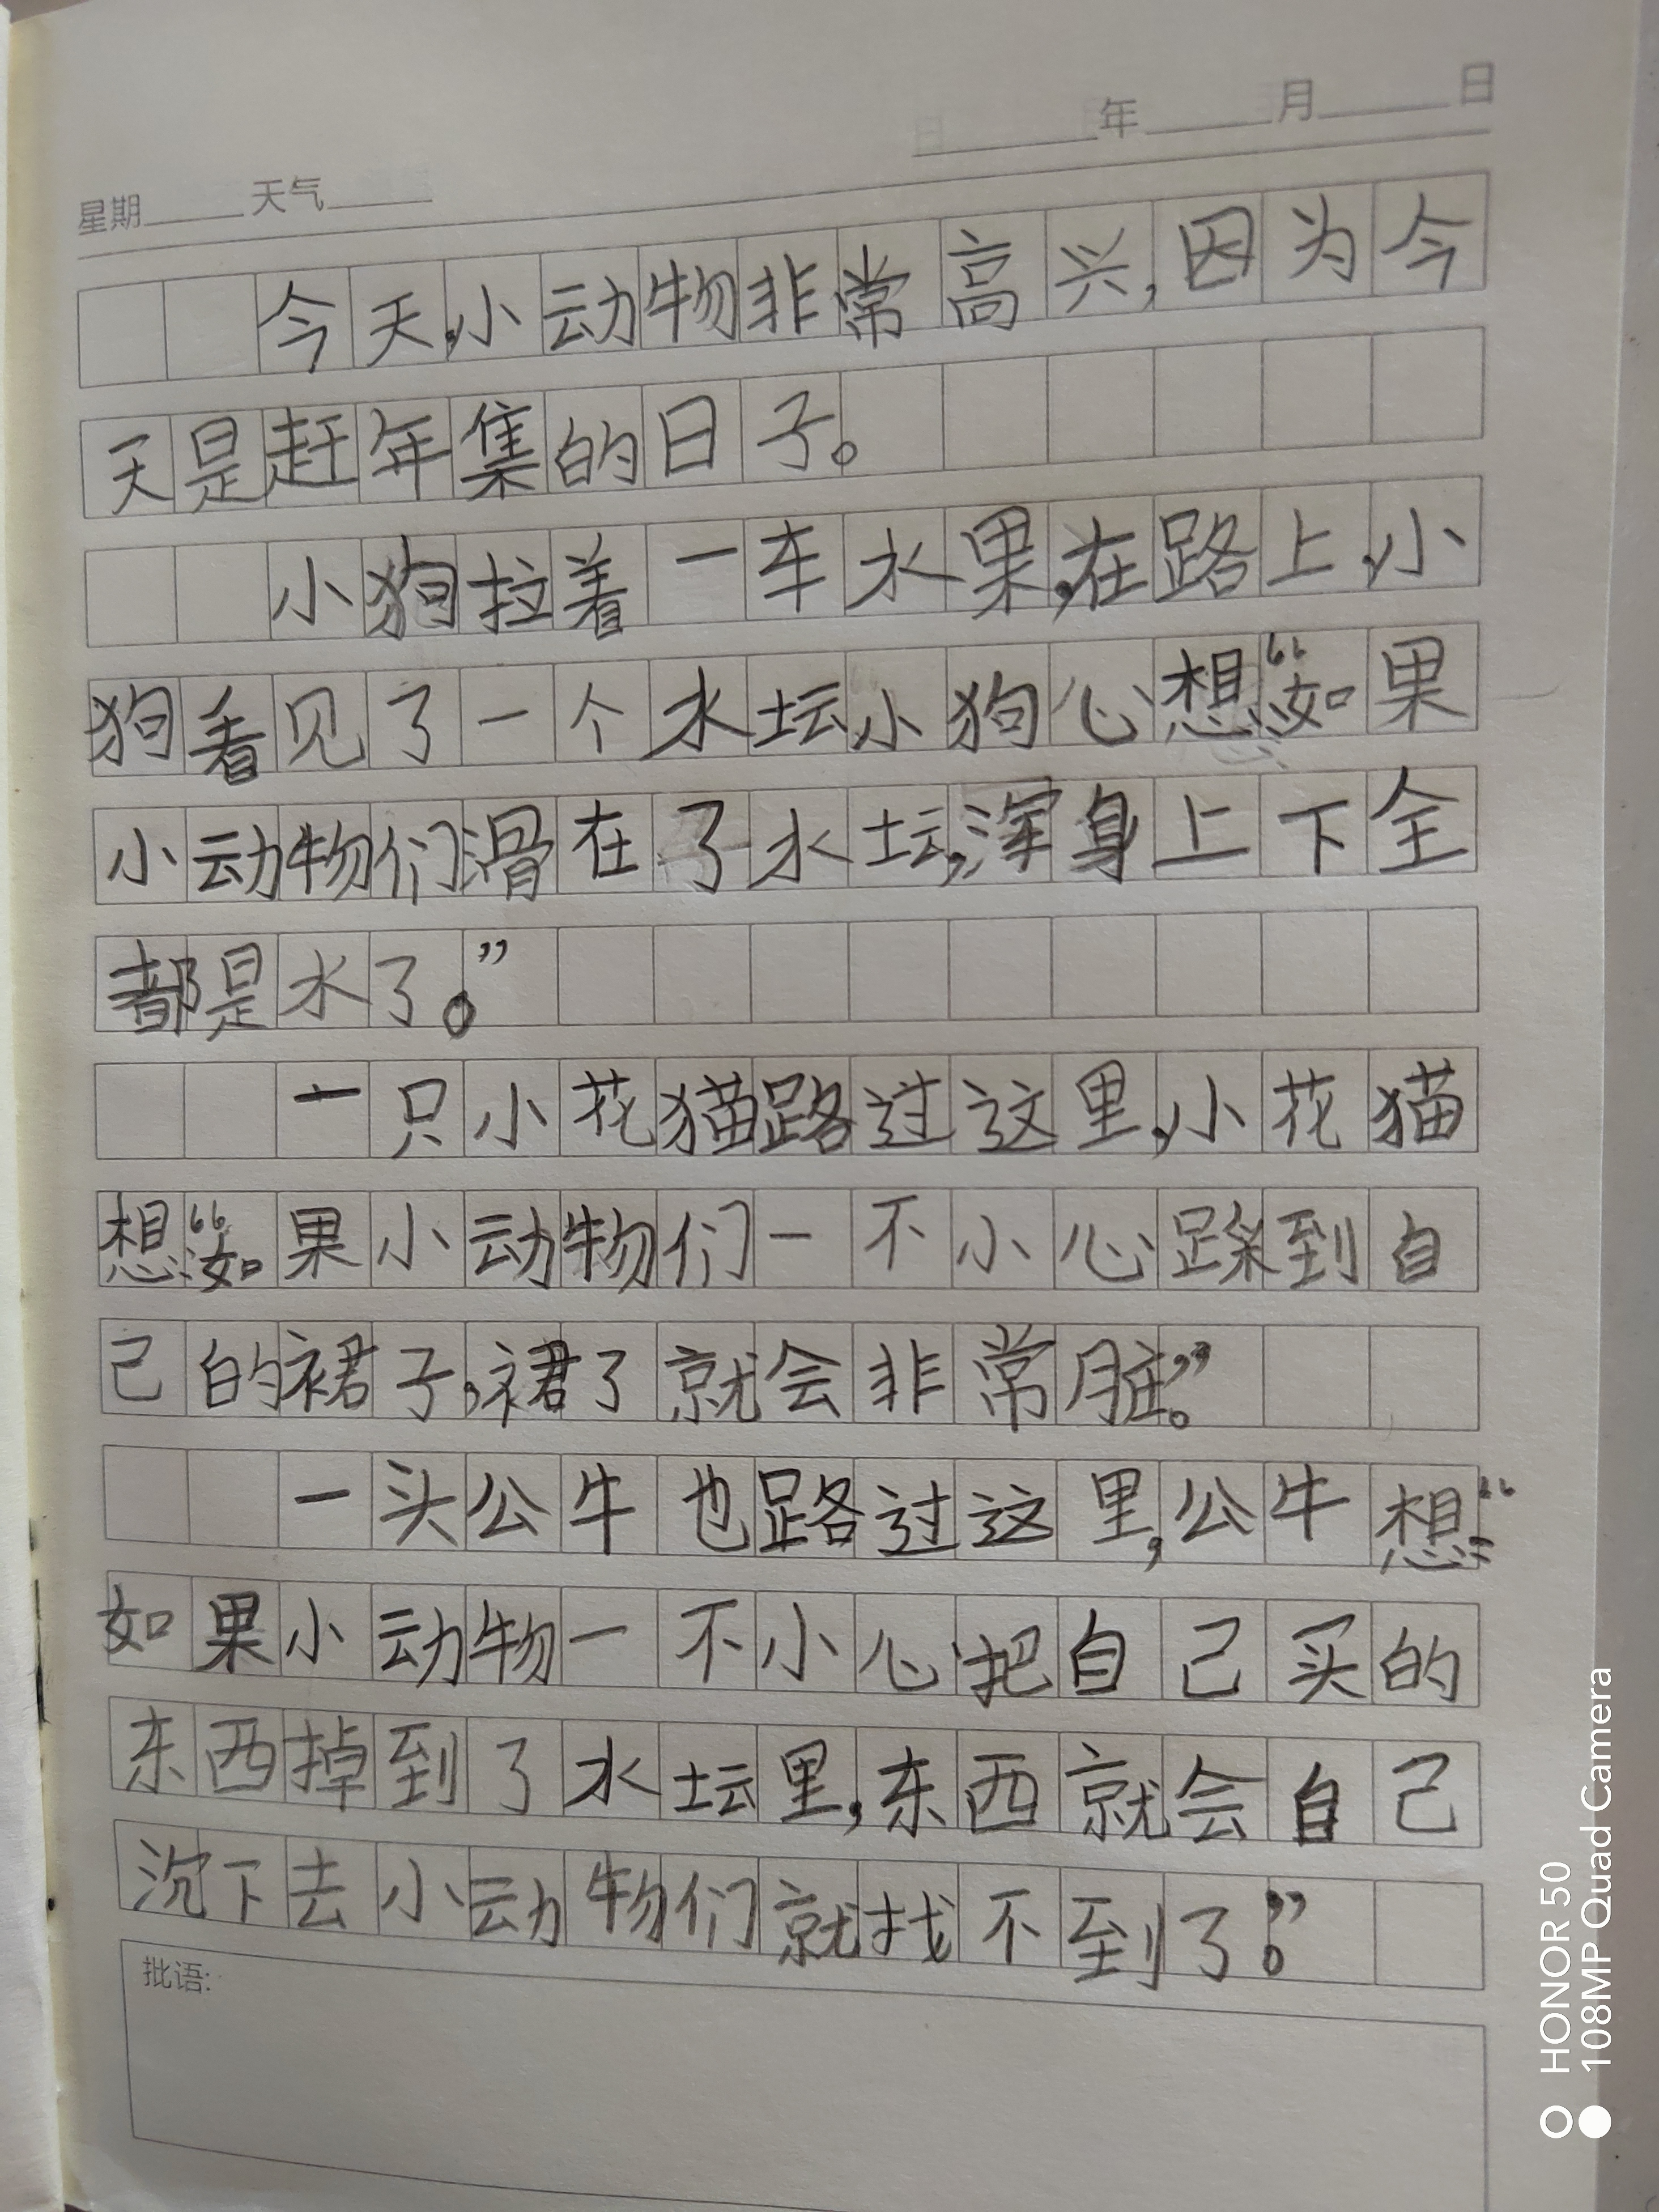 年 月 日
星期 天气
今天,小动物非常高兴,因为今
天是赶年集的日子。
小狗拉着一车水果,在路上,小
狗看见了一个水坛小狗心想:“如果
小动物们滑在了水坛,浑身上下全
都是水了。”
一只小花猫路过这里,小花猫
想:“如果小动物们一不小心踩到自
己的裙子,裙了就会非常脏。”
一头公牛也路过这里,公牛想:“
如果小动物一不小心把自己买的
东西掉到了水坛里,东西就会自己
沉下去小动物们就找不到了。”
批语:
HONOR 50
108MP Quad Camera